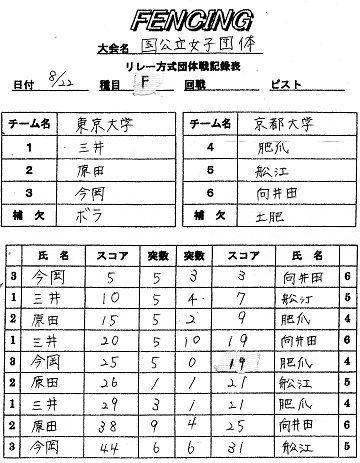 FENCING
大会名 国公立女子団体
リレー方式団体戦記録表
日付 8/22 種目 F 回戦 ピスト
チーム名 東京大学
1 三井
2 原田
3 今岡
補欠 ボラ
チーム名 京都大学
4 肥爪
5 舩江
6 向井田
補欠 土肥
氏名 スコア 突数 突数 スコア 氏名
3 今岡 5 5 3 3 向井田 6
1 三井 10 5 4 7 舩江 5
2 原田 15 5 2 9 肥爪 4
1 三井 20 5 10 19 向井田 6
3 今岡 25 5 0 19 肥爪 4
2 原田 26 1 1 21 舩江 5
1 三井 29 3 1 21 肥爪 4
2 原田 38 9 4 25 向井田 6
3 今岡 44 6 6 31 舩江 5